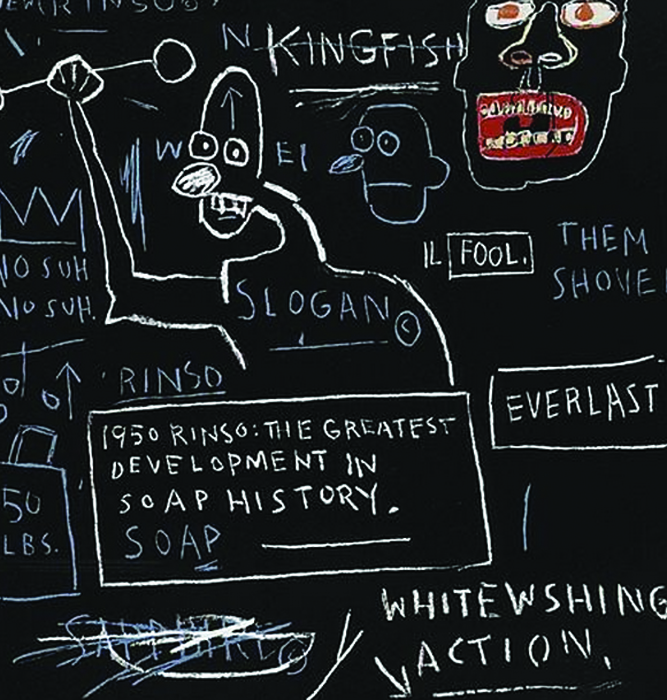 N KINGFISH
W EI
IL FOOL.
THEM
SHOVE
NO SUH
NO SUH.
SLOGAN ©
RINSO
EVERLAST
1950 RINSO: THE GREATEST
DEVELOPMENT IN
SOAP HISTORY.
SOAP
50
LBS.
WHITEWSHING
ACTION.